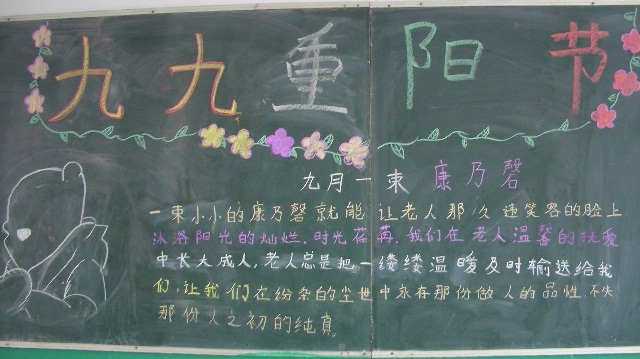 九九重阳节
九月一束 康乃磬
一束小小的康乃磬就能让老人那久违笑容的脸上
沐浴阳光的灿烂。时光荏苒,我们在老人温馨的扶爱
中长大成人,老人总是把一缕缕温暖及时输送给我
们,让我们在纷杂的尘世中求存那份做人的品性,不失
那份人之初的纯真